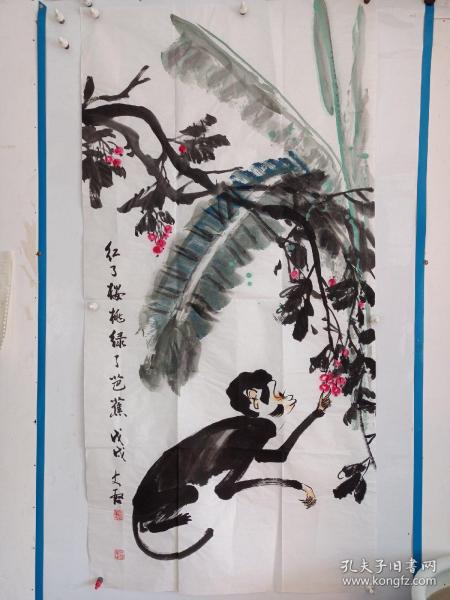 红了樱桃绿了芭蕉 戊戌
孔夫子旧书网
www.kongfz.com